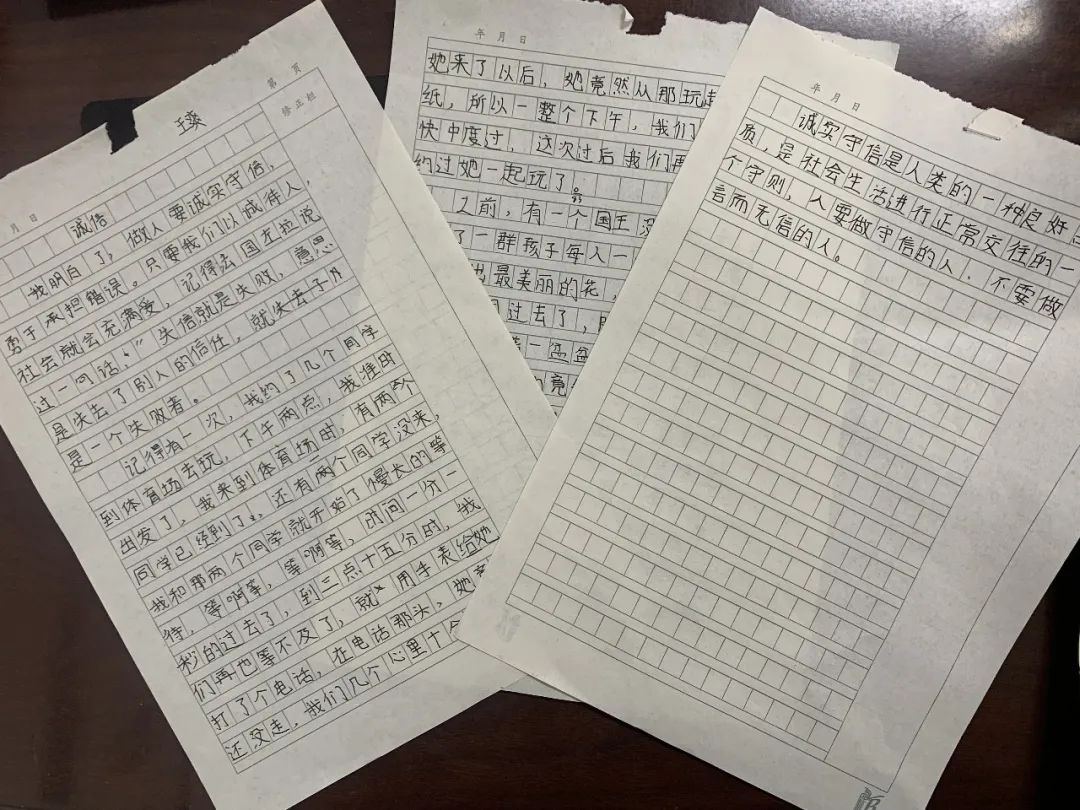 第 页
月 日
修正栏
诚信
我明白了，做人要诚实守信，
勇于承担错误。只要我们以诚待人，
社会就会充满爱，记得法国左拉说
过一句话：“失信就是失败，意思
是失去了别人的信任，就失去了
是一个失败者。
记得有一次，我约了几个同学
到体育场去玩，下午两点，我准时
出发了，我来到体育场时，有两个
同学已经到了，还有两个同学没来，
我和那两个同学就开始了慢长的等
待，等啊等，等啊等，时间一分一
秒的过去了，到三点十五分时，我
们再也等不及了，就用手表给她
打了个电话，在电话那头，她竟
还没走，我们几个心里十个
年 月 日
她来了以后，她竟然从那玩起
纸，所以一整个下午，我们
快中度过，这次过后我们再
约过她一起玩了。
前，有一个国王没
了一群孩子每人一
出最美丽的花，
过去了，
着一盆盆
的竟
年 月 日
诚实守信是人类的一种良好品
质，是社会生活进行正常交往的一
个守则，人要做守信的人，不要做
言而无信的人。